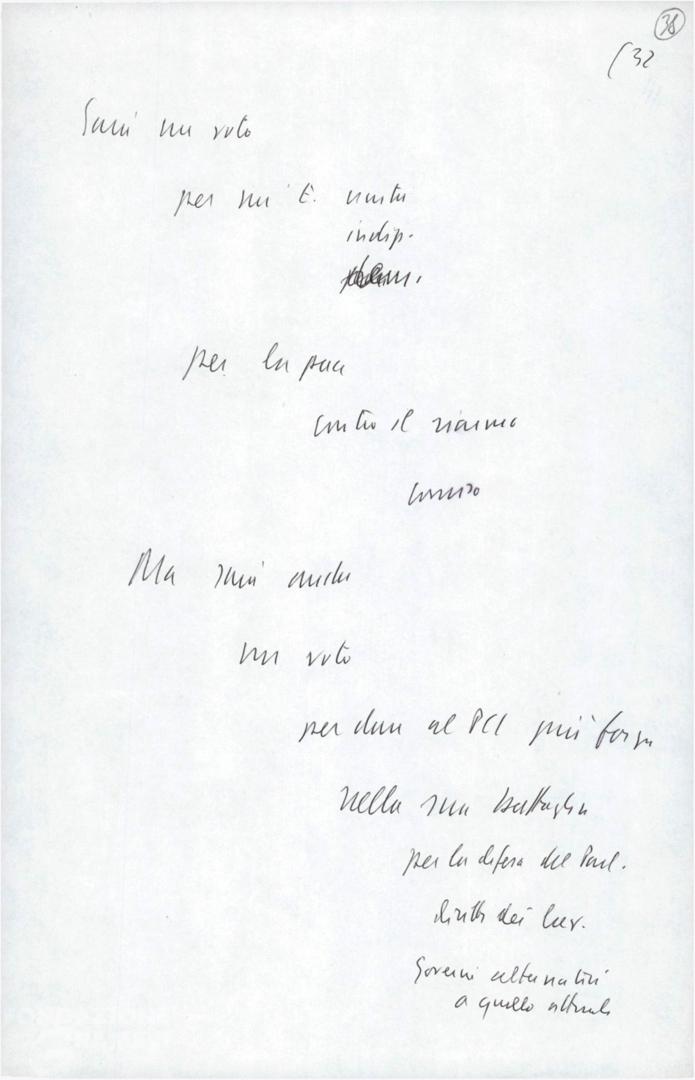 38
(32
Sarà un voto
per un' E. unita
indip.
per la pace
contro il riarmo
Comiso
Ma sarà anche
un voto
per dare al PCI più forza
nella sua battaglia
per la difesa del Parl.
diritti dei lav.
Governi alternativi
a quello attuale